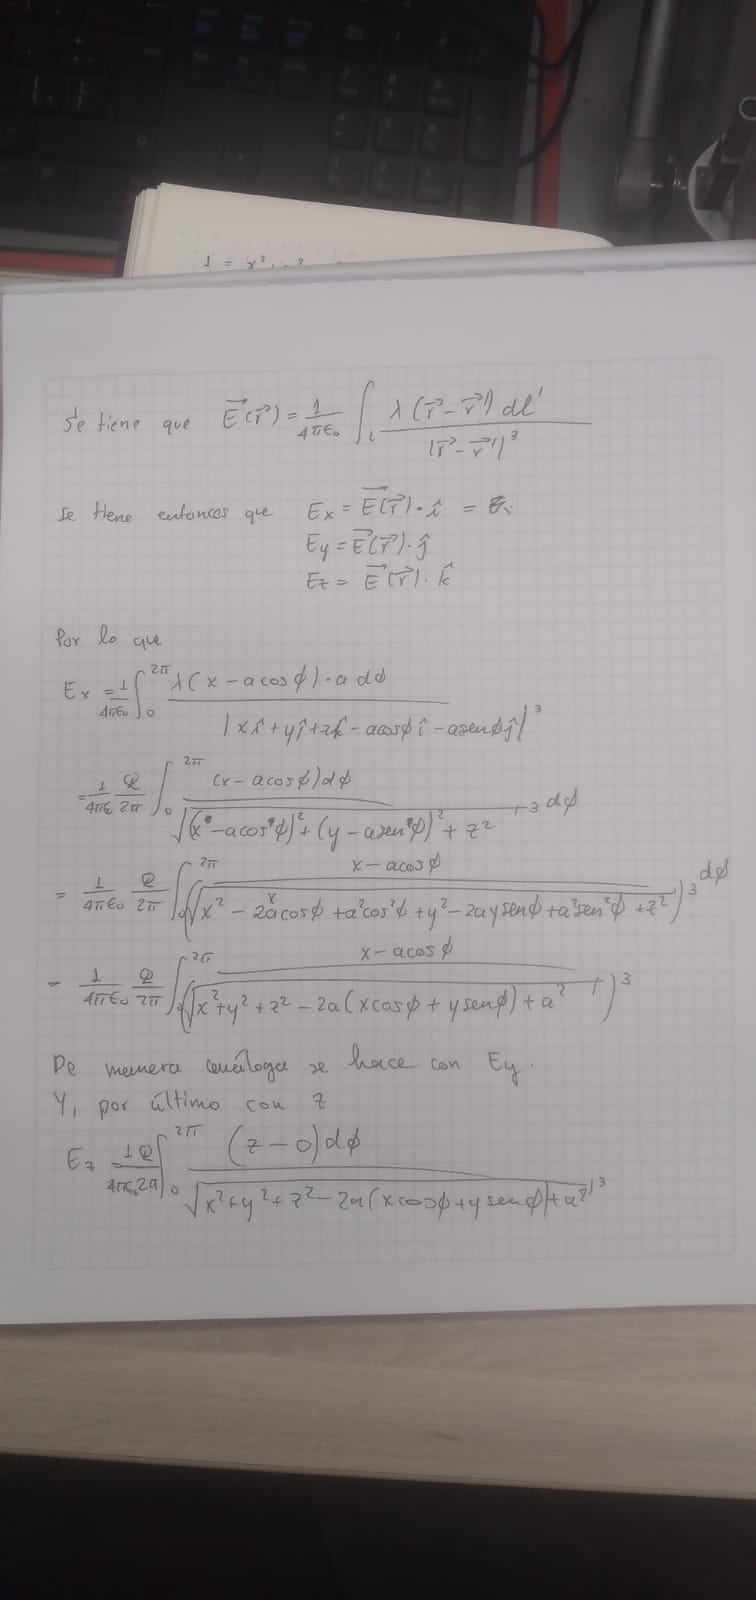 1 = x²
Se tiene que E⃗(r⃗) = 1/4πε₀ ∫_L λ(r⃗ - r⃗') dl' / |r⃗ - r⃗'|³
se tiene entonces que Ex = E⃗(r⃗)·î =
Ey = E⃗(r⃗)·ĵ
Ez = E⃗(r⃗)·k̂
Por lo que
Ex = 1/4πε₀ ∫₀^2π λ(x - a cos φ)·a dφ / |xî + yĵ + zk̂ - a cos φ î - a sen φ ĵ|³
= 1/4πε₀ Q/2π ∫₀^2π (x - a cos φ) dφ / √((x - a cos φ)² + (y - a sen φ)² + z²)³ dφ
= 1/4πε₀ Q/2π ∫₀^2π x - a cos φ / (√(x² - 2ax cos φ + a² cos² φ + y² - 2ay sen φ + a² sen² φ + z²))³ dφ
= 1/4πε₀ Q/2π ∫₀^2π x - a cos φ / (√(x² + y² + z² - 2a(x cos φ + y sen φ) + a²))³
De manera análoga se hace con Ey.
Y, por último con z
Ez = 1/4πε₀ Q/2π ∫₀^2π (z - 0) dφ / √(x² + y² + z² - 2a(x cos φ + y sen φ) + a²)³